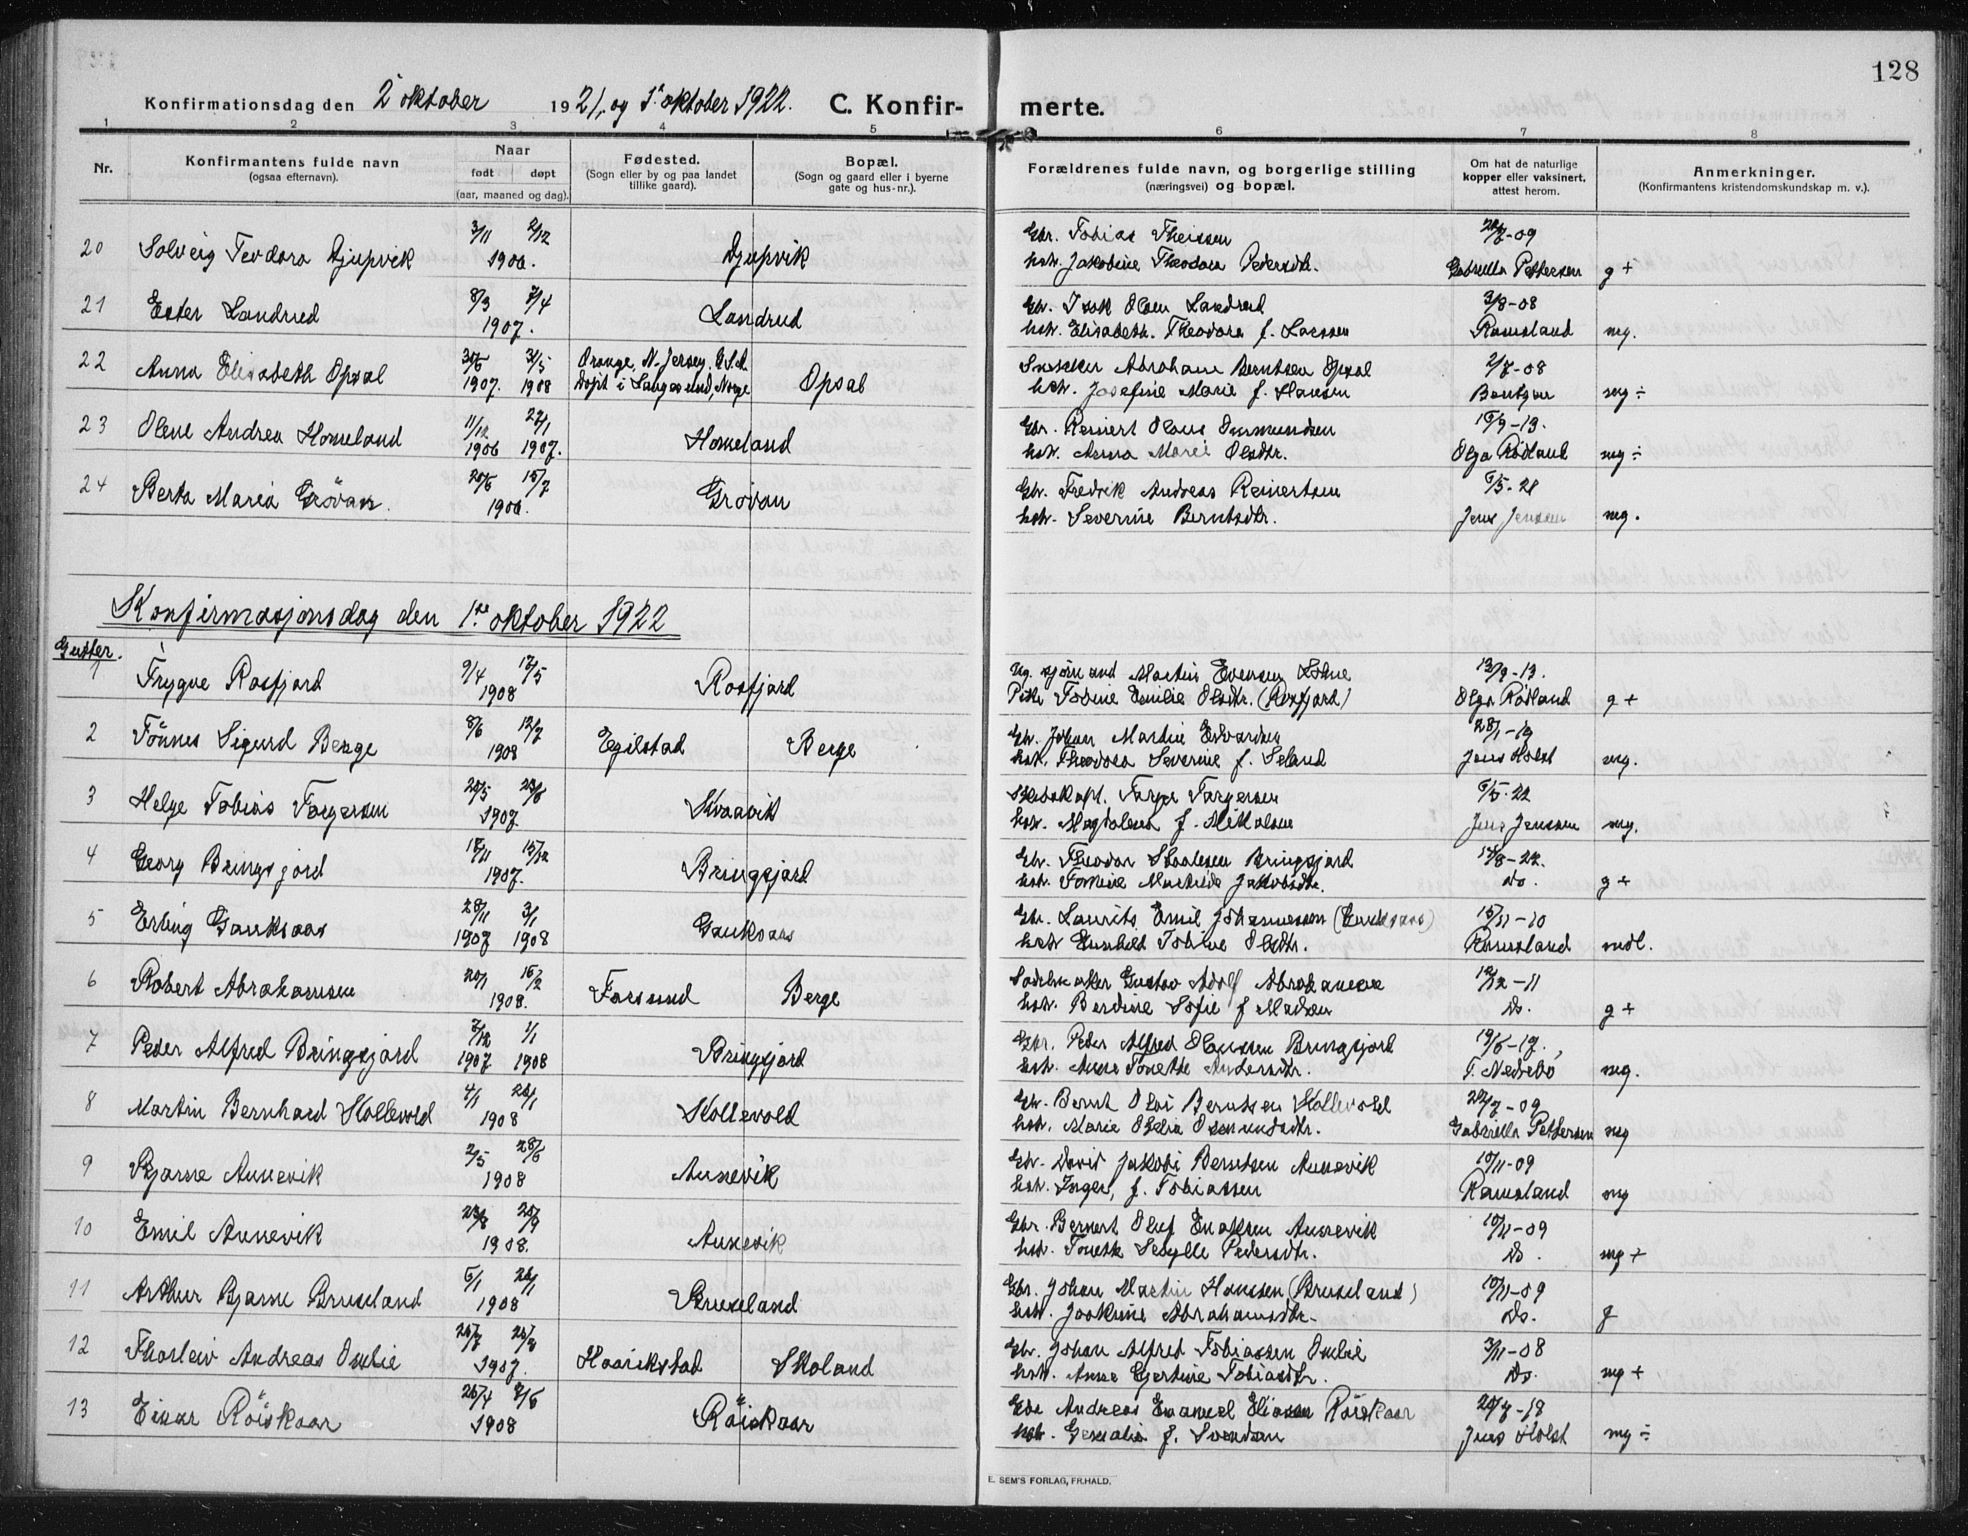 128
Konfirmationsdag den 2 oktober 1921, og 1. oktober 1922. C. Konfirmerte.
1 2 3 4 5 6 7 8
Nr. Konfirmantens fulde navn (ogsaa efternavn). Naar født døpt (aar, maaned og dag). Fødested. (Sogn eller by og paa landet tillike gaard). Bopæl. (Sogn og gaard eller i byerne gate og hus-nr.). Forældrenes fulde navn, og borgerlige stilling (næringsvei) og bopæl. Om hat de naturlige kopper eller vaksinert, attest herom. Anmerkninger. (Konfirmantens kristendomskundskap m. v.).
20 Solveig Teodora Djupvik 3/11 2/12 1906. Djupvik Gbr. Tobias Theissen -09
hst. Jakobine Theodora Pedersdtr. Gabriella Pettersen g +
21 Ester Landrud 8/3 7/4 1907. Landrud Gbr. Isak Olsen Landrud 3/8-08
hst. Elisabeth Theodora f. Larsen Ramsland mg.
22 Anna Elisabeth Opsal 30/6 31/5 1907. 1908 Orange, N. Jersey, U.S.A. Døpt i Langesund, Norge Opsal Snekker Abraham Berntsen Opsal 2/7-08
hst. Josefine Marie f. Hansen mg ÷
23 Olene Andrea Homeland 11/12 27/1 1906 1907. Homeland Gbr. Reinert Olaus Osmundsen 16/9-13.
hst. Anna Marie Olsdtr. Olga Rødland mg ÷
24 Berta Maria Grövan. 20/5 15/7 1906. Grövan Gbr. Fredrik Andreas Reinertsen 6/5-21
hst. Severine Berntsdtr. Jens Jensen mg.
Konfirmasjonsdag den 1ste oktober 1922
Gutter.
1 Trygve Rosfjord 9/4 17/5 1908 Rosfjord Ug. sjømand Martin Evensen
Pike Tobine Emilie Olsdtr. (Rosfjord) Olga Rødland g +
2 Tönnes Sigurd Berge 8/6 12/7 1908 Egilstad Berge Gbr. Johan Martin Edvardsen 28/1-19
hst. Theodora Severine f. Seland Jens Holst mg.
3 Helge Tobias Torgersen 1907 Kvaavik Skibskapt. Torger Torgersen 6/5-22
hst. Magdalena f. Mikalsen Jens Jenssen mg.
4 Georg Bringsjord 15/12 1907. Bringsjord Gbr. Theodor Staalesen Bringsjord 17/8-22.
hst. Tomine Mathilde Jakobsdtr. Do. g +
5 Erling Gauksaas 28/11 3/1 1907 1908 Gauksaas Gbr. Laurits Emil Johannessen (Gauksaas) 15/11-10
hst. Gunhild Tobine Olsdtr. Ramsland mdl.
6 Robert Abrahamsen 20/1 16/2 1908. Farsund Berge Sadelmaker Gustav Adolf Abrahamsen 12/12-11
hst. Berdine Sofie f Madsen Do. g +
7 Peder Alfred Bringsjord 7/12 1/1 1907 1908 Bringsjord Gbr. Peder Alfred Olaussen Bringsjord 19/6-17.
hst. Anne Tonette Andersdtr. T. Nedrebö mg.
8 Martin Bernhard Hollevold 4/1 26/1 1908 Hollevold Gbr. Bernt Olai Berntsen Hollevold 22/7-09
hst. Marie Otelia Osmundsdtr. Gabriella Pettersen mg
9 Bjarne Aunevik 2/5 28/6 1908 Aunevik Gbr. David Jakobi Berntsen Aunevik 10/11-09
hst. Inger, f. Tobiassen Ramsland mg
10 Emil Aunevik 23/8 20/9 1908. Aunevik Gbr. Bernert Oluf Aunevik 10/11-09
hst. Tonette Sibylle Pedersdtr. Do. mg +
11 Arthur Bjarne Bruseland 5/1 26/1 1908 Bruseland Gbr. Johan Martin Hanssen (Bruseland) 10/11-09
hst. Joakime Abrahamsdtr. Do. g
12 Thorleiv Andreas Omlie 1907. Haarikstad Skoland Gbr. Johan Alfred Tobiassen Omlie 3/11-08
hst. Anne Gjertine Tobiasdtr. Do. mg +
13 Einar Röiskaar 26/4 8/6 1908 Röiskaar Gbr Andreas Emanuel Eliasen Röiskaar 20/7-18
hst. f. Svendsen Jens Holst mg ÷
E. SEM'S FORLAG, FR.HALD.